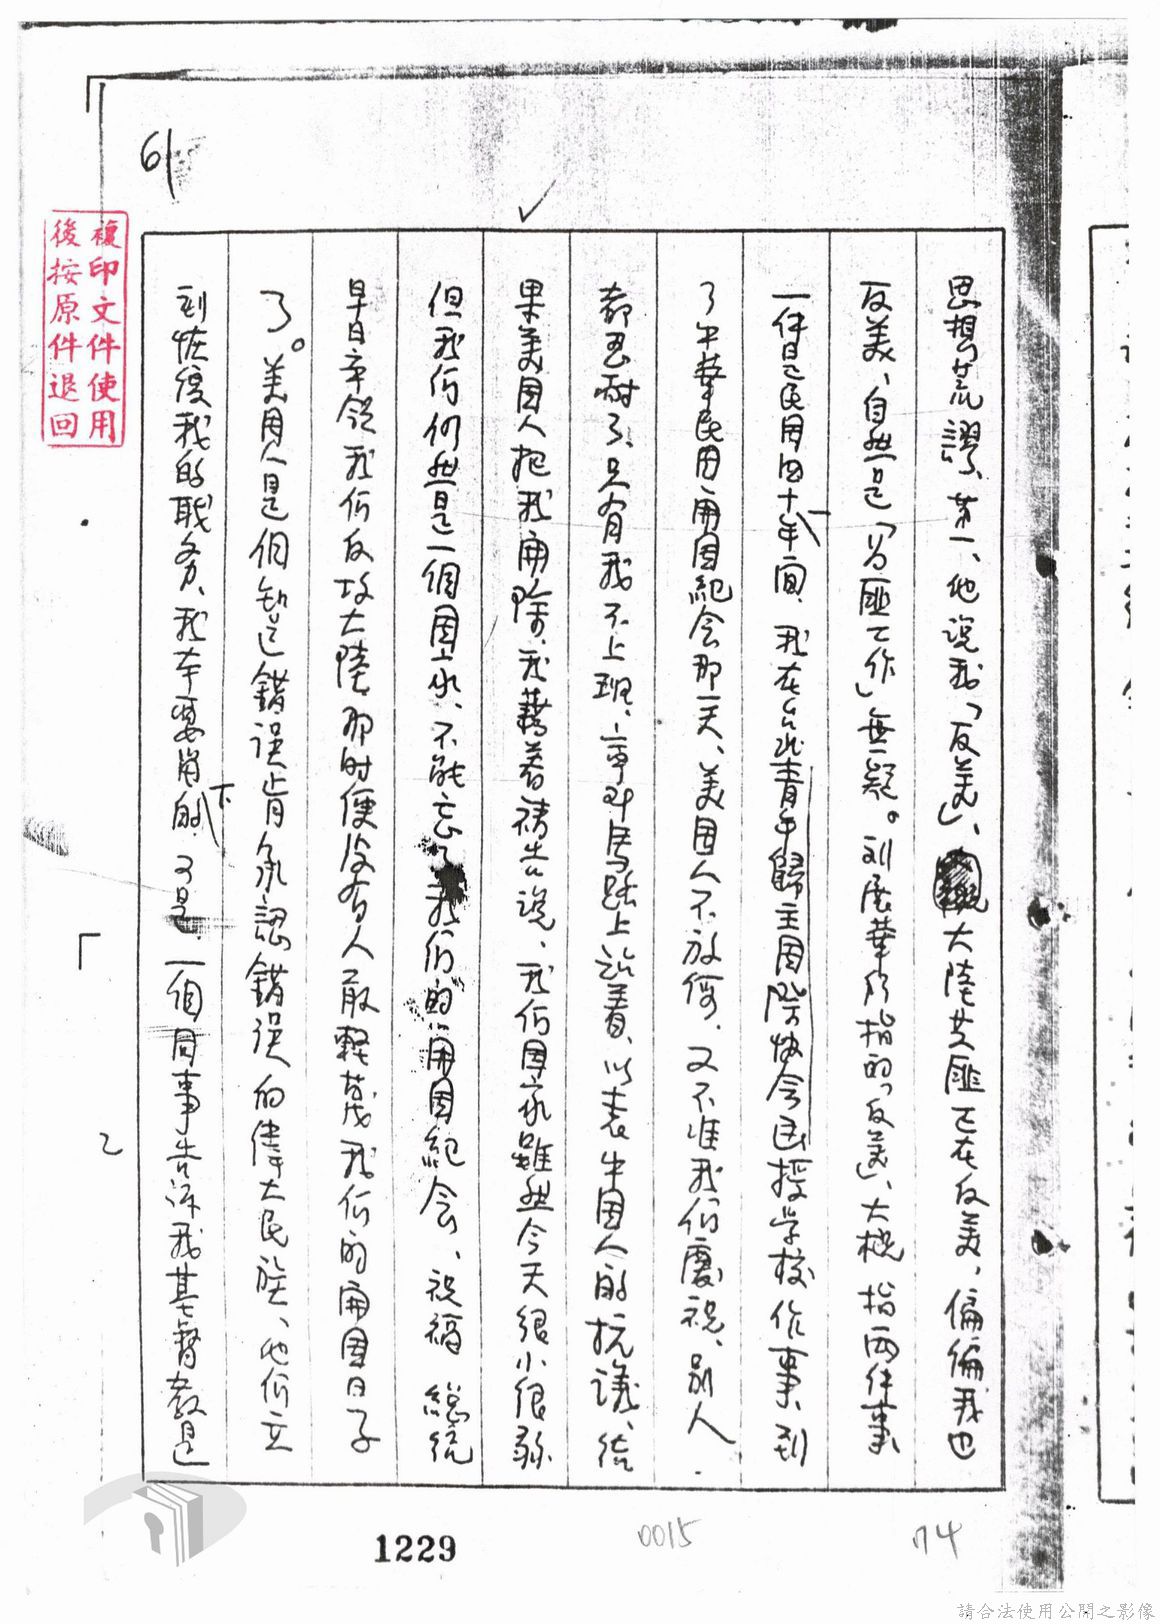 61
複印文件使用
後按原件退回
思想荒謬、第一、他说我「反美」、大陸共匪正在反美，偏偏我也
反美、自然是「为匪工作」無疑。刘展華所指的「反美」、大概指两件事
一件是民国四十年間、我在台北青年歸主国際協会函授学校作事、到
了中華民国開国紀念那一天、美国人不放假、又不准我们慶祝、别人
都忍耐了、只有我不上班、在马路上站着、以表中国人的抗議、結
果美国人把我開除、我藉着禱告说、我们国家雖然今天很小很弱
但我们仍然是一個国家、不能忘了我们的開国紀念、祝福 総統
早日率领我们反攻大陸、那时便没有人敢輕蔑我们的開国日子
了。美国人是個知道錯误肯承認錯误的偉大民族、他们立
刻恢復我的职务、我本要肯的下、可是、一個同事告诉我基督教是
1229
0015
74
請合法使用公開之影像